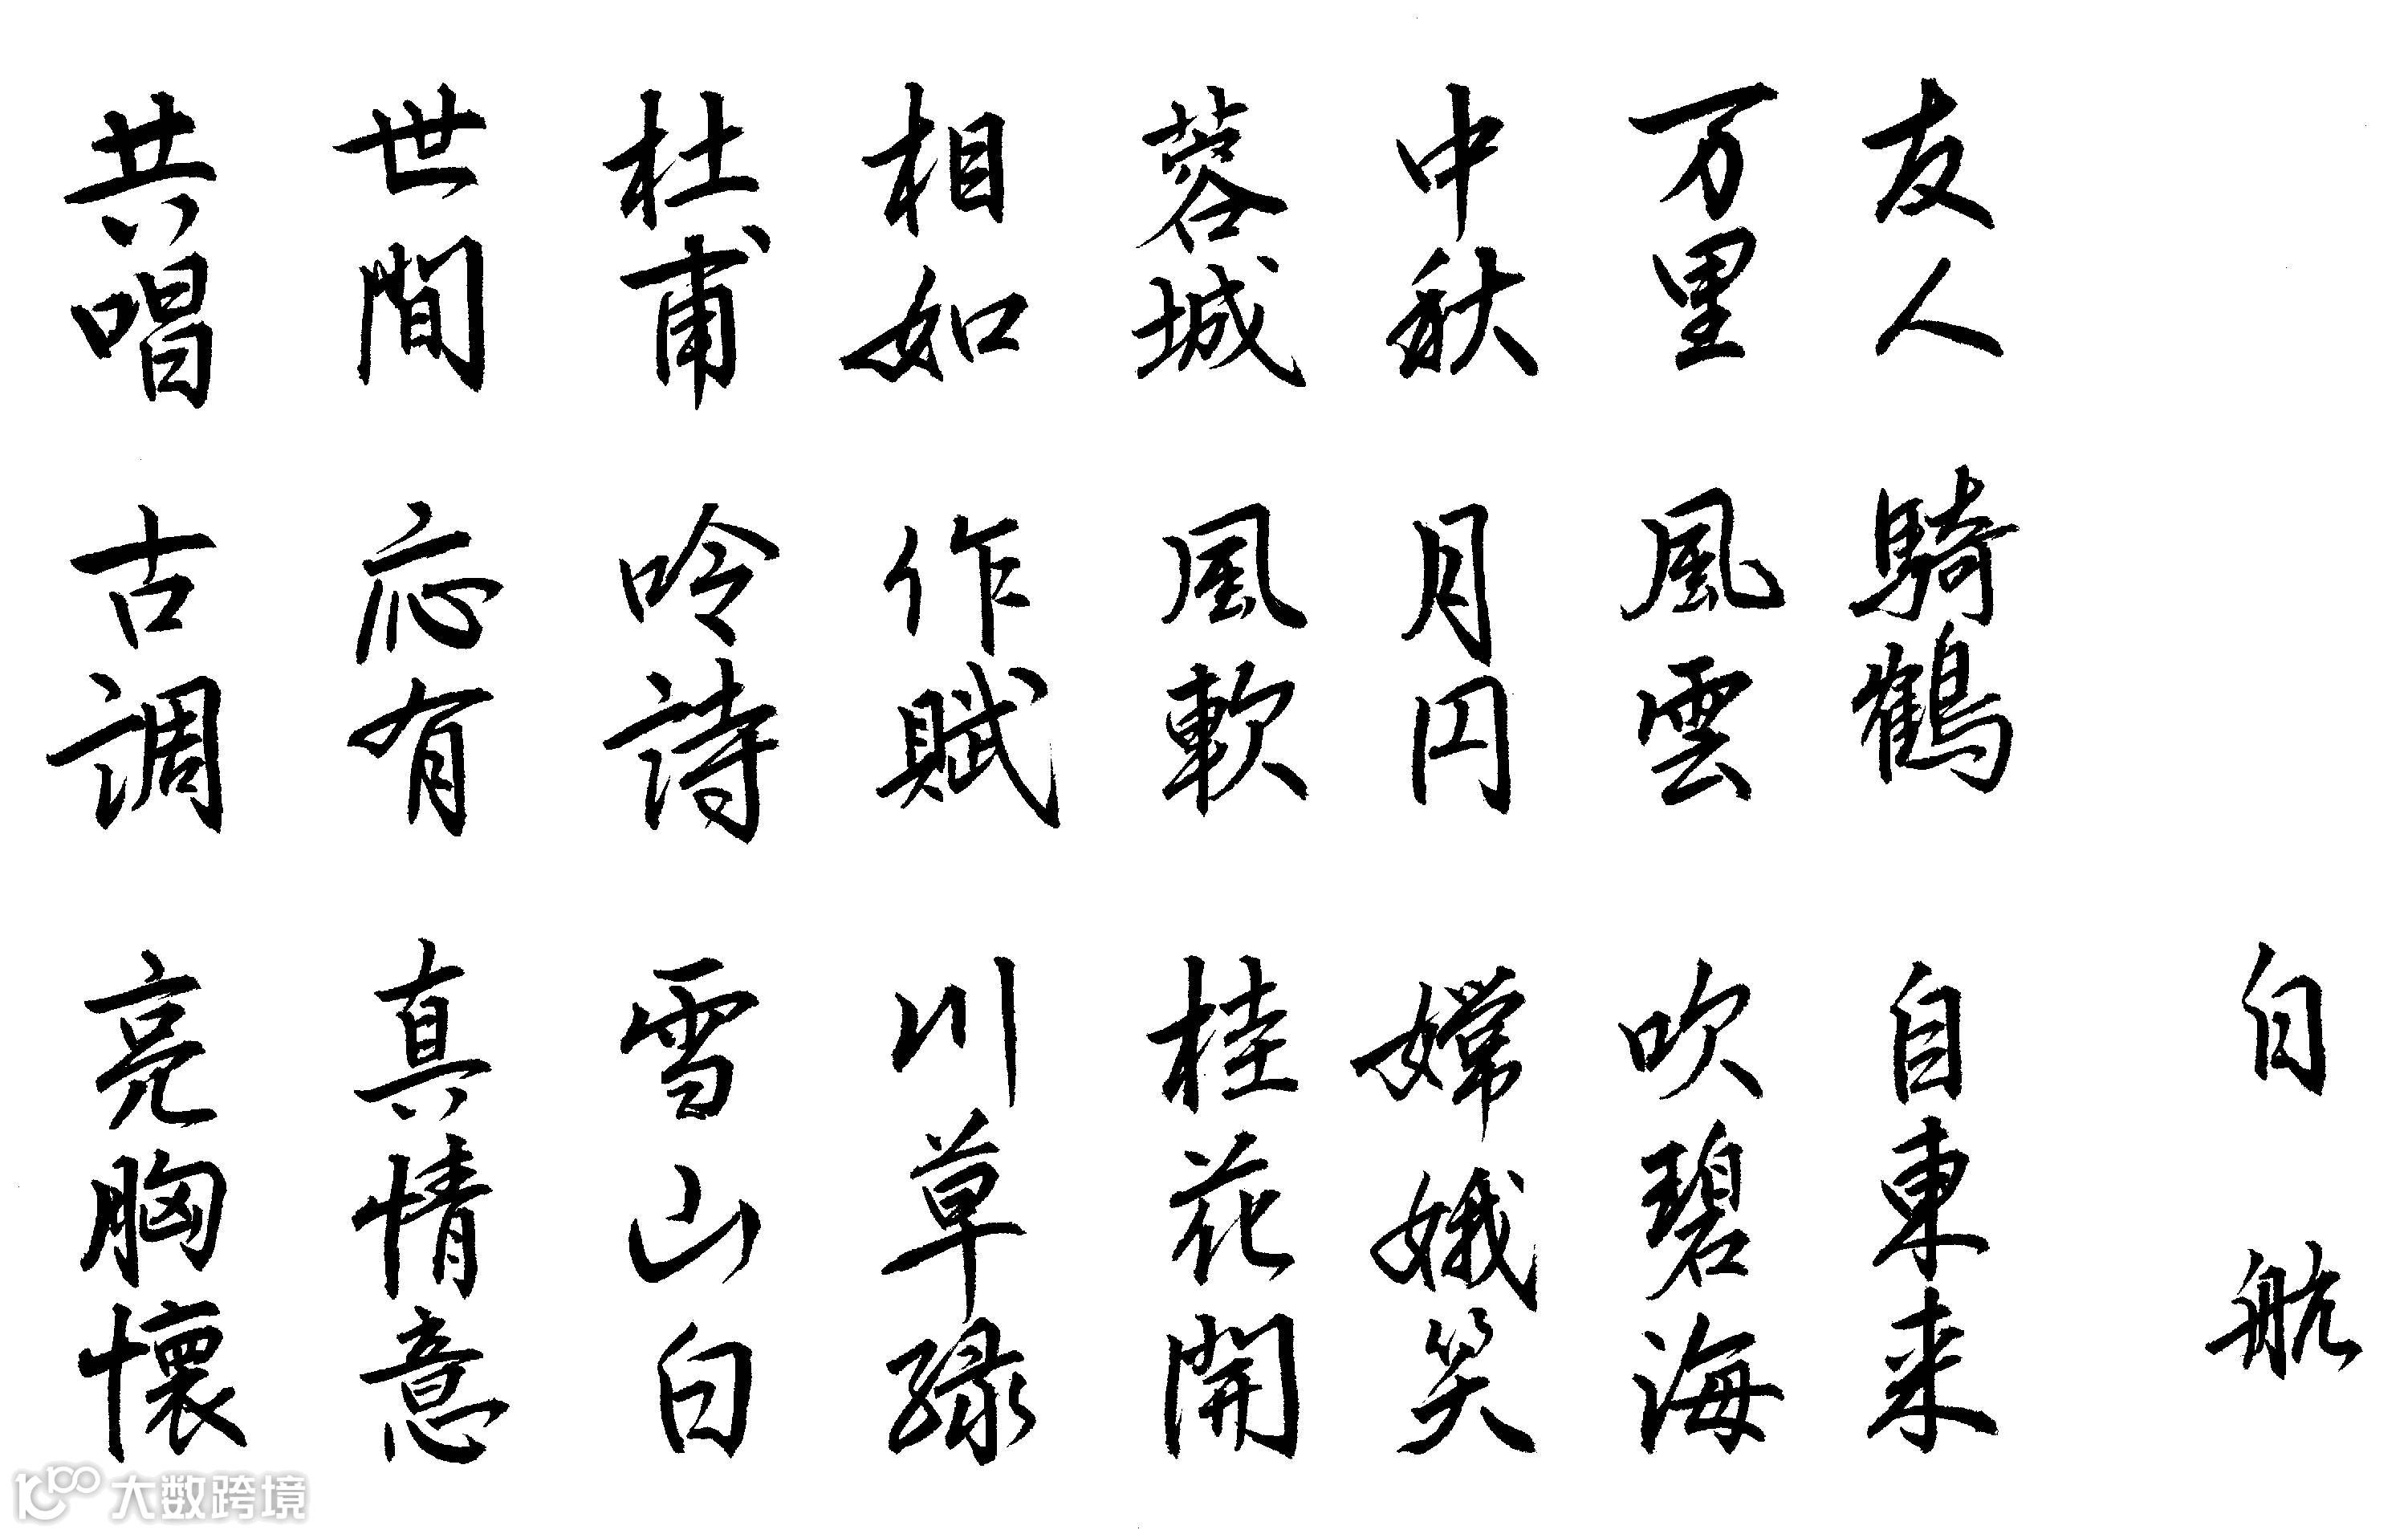 白航
友人騎鶴自東来
万里風雲吹碧海
中秋月円嫦娥笑
蓉城風軟桂花開
相如作賦川草緑
杜甫吟詩雪山白
世間応有真情意
共唱古調亮胸懷
大数跨境